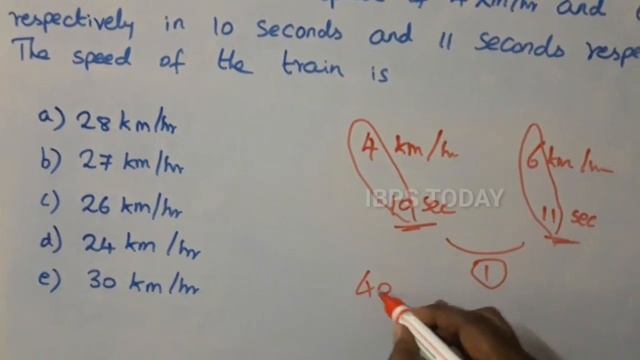 4 km/hr and
respectively in 10 seconds and 11 seconds
The speed of the train is
a) 28 km/hr
b) 27 km/hr
c) 26 km/hr
d) 24 km/hr
e) 30 km/hr
4 km/hr 6 km/hr
10 sec 11 sec
1
40
IBPS TODAY